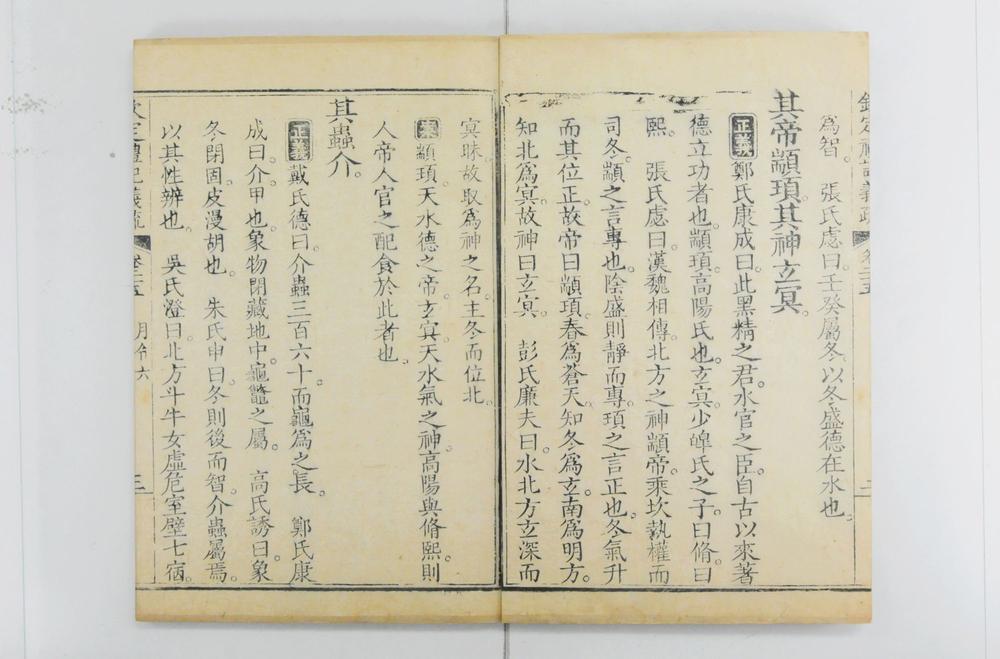 欽定禮記義疏 卷二五 二
爲智。 張氏慮曰。壬癸屬冬。以冬盛德在水也。
其帝顓頊其神玄冥。
正義 鄭氏康成曰。此黑精之君。水官之臣。自古以來著
德立功者也。顓頊。高陽氏也。玄冥。少皡氏之子。曰脩。曰
熙。 張氏慮曰。漢魏相傳。北方之神顓帝。乘坎執權而
司冬。顓之言專也。陰盛則靜而專。頊之言正也。冬氣升
而其位正。故帝曰顓頊。春爲蒼天。知冬爲玄。南爲明方。
知北爲冥。故神曰玄冥。 彭氏廉夫曰。水北方玄深而
冥昧。故取爲神之名。主冬而位北。
案 顓頊。天水德之帝。玄冥。天水氣之神。高陽與脩熙。則
人帝人官之配食於此者也。
其蟲介。
正義 戴氏德曰。介蟲三百六十。而龜爲之長。 鄭氏康
成曰。介。甲也。象物閉藏地中。龜鼈之屬。 高氏誘曰。象
冬閉固。皮漫胡也。 朱氏申曰。冬則後而智。介蟲屬焉。
以其性辨也。 吳氏澄曰。北方斗牛女虛危室壁七宿。
欽定禮記義疏 卷三五 月令六 三